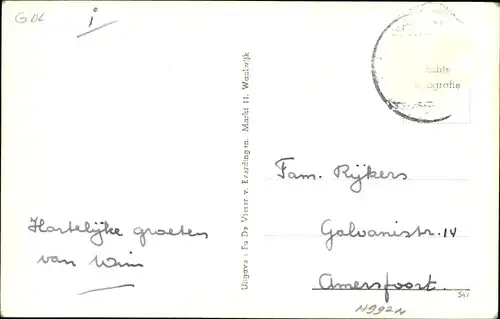 G BL
i
Hartelijke groeten
van Wim
Uitgave: Fa De Visser v. Everdingen. Markt 11. Waalwijk
Echte
fotografie
Fam. Rijkers
Galvanistr. 14
Amersfoort.
541
H992N